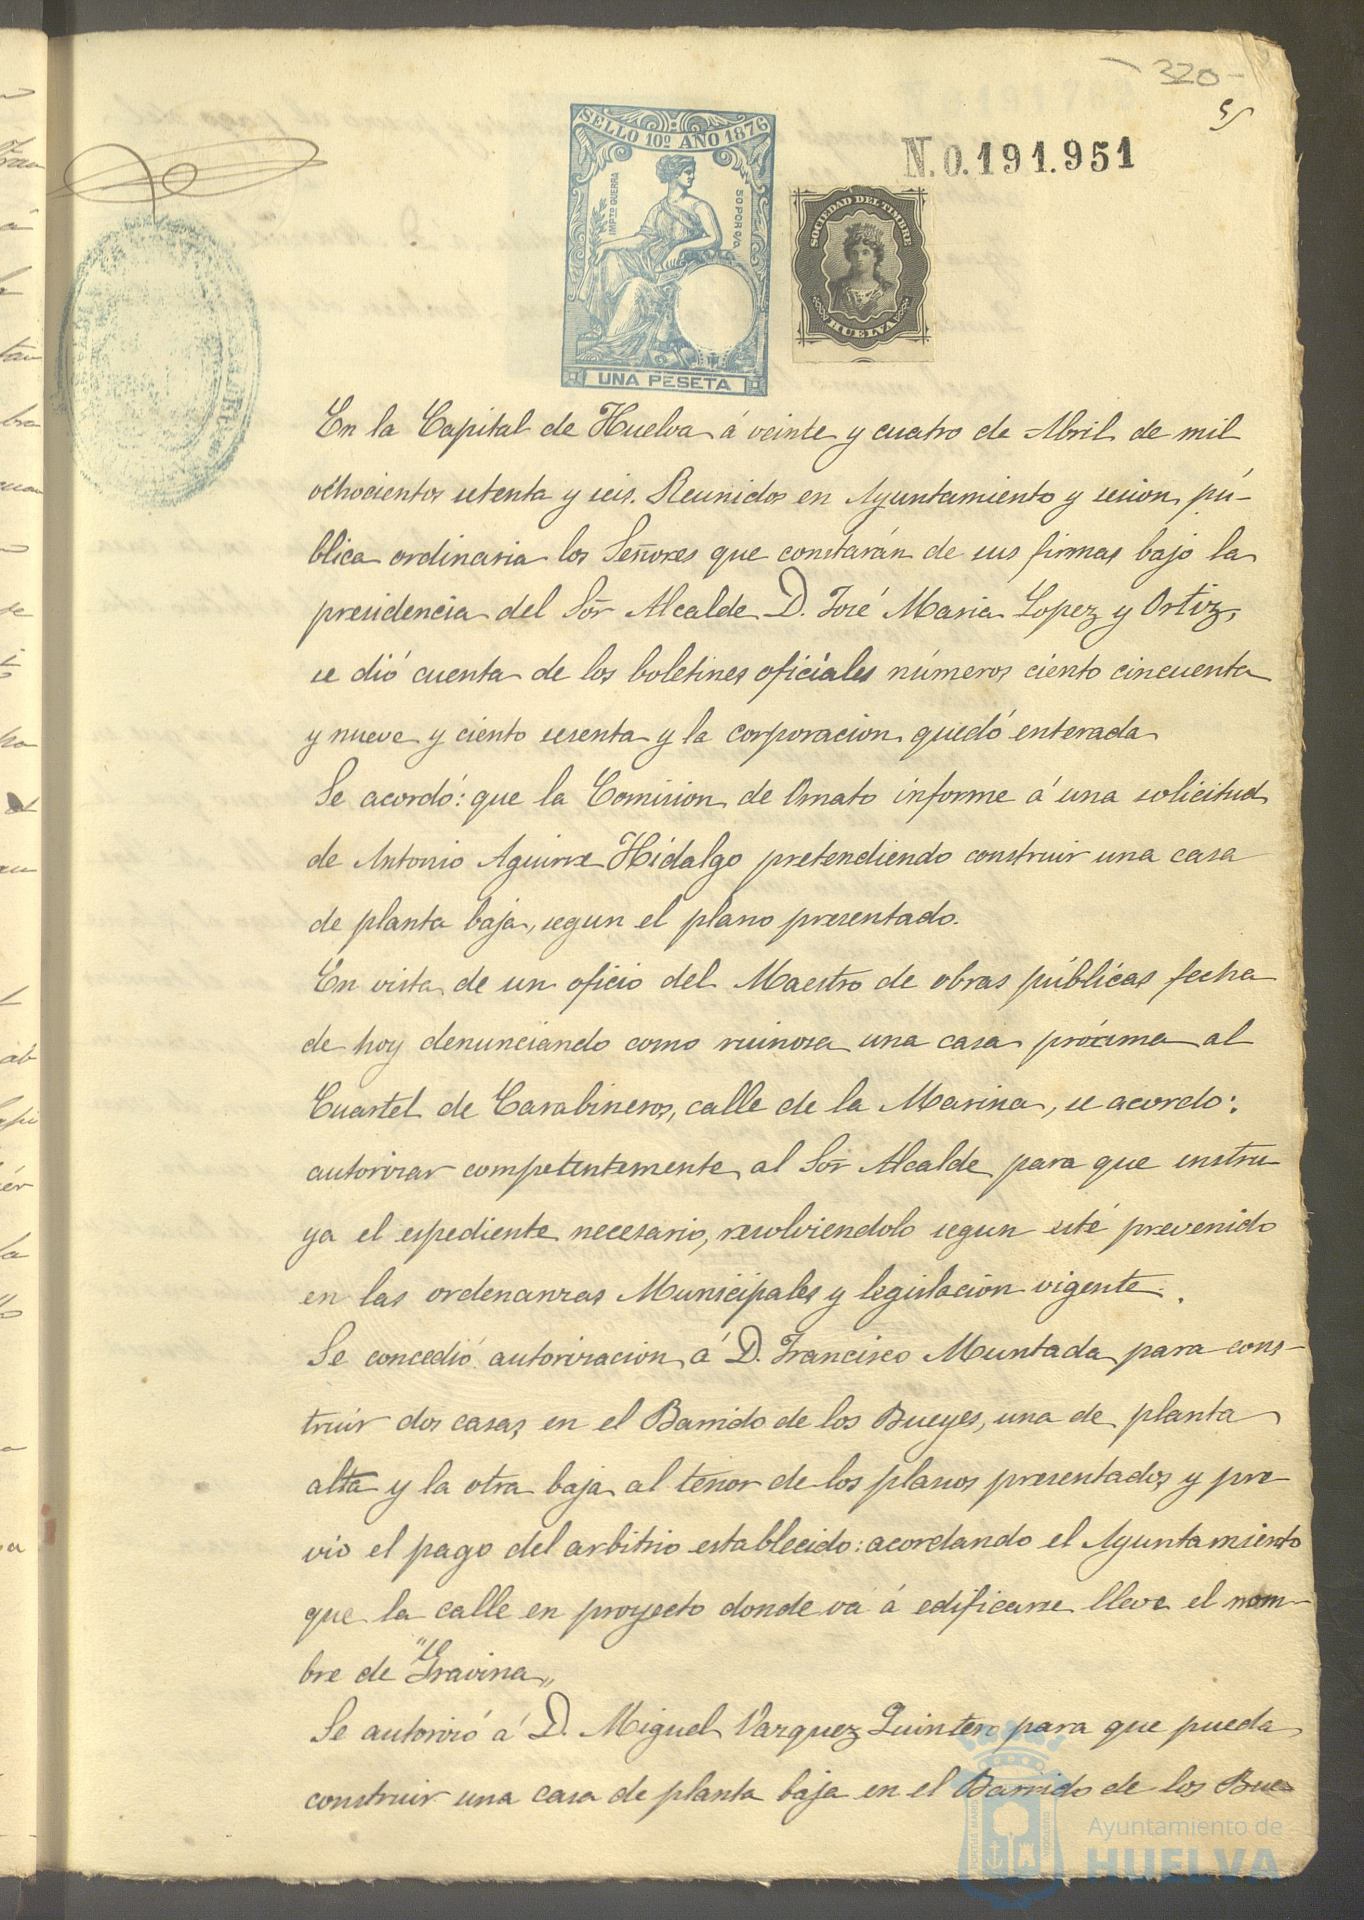 320
SELLO 10º AÑO 1876
IMPTO GUERRA
50 POR O/O
UNA PESETA
N.0.191.951
SOCIEDAD DEL TIMBRE
HUELVA
En la Capital de Huelva á veinte y cuatro de Abril de mil
ochocientos setenta y seis. Reunidos en Ayuntamiento y sesion pú-
blica ordinaria los Señores que constarán de sus firmas bajo la
presidencia del Sor Alcalde D. José Maria Lopez y Ortiz,
se dió cuenta de los boletines oficiales números ciento cincuenta
y nueve y ciento sesenta y la corporacion quedó enterada
Se acordó: que la Comision de Ornato informe á una solicitud
de Antonio Aguirre Hidalgo pretendiendo construir una casa
de planta baja, segun el plano presentado.
En vista de un oficio del Maestro de obras públicas fecha
de hoy denunciando como ruinosa una casa próxima al
Cuartel de Carabineros, calle de la Marina, se acordo:
autorizar competentemente al Sor Alcalde para que instru-
ya el espediente necesario, resolviendolo segun esté prevenido
en las ordenanzas Municipales y legislacion vigente.
Se concedió autorizacion á D. Francisco Muntada para cons-
truir dos casas en el Barrido de los Bueyes, una de planta
alta y la otra baja al tenor de los planos presentados y pre
vio el pago del arbitrio establecido: acordando el Ayuntamiento
que la calle en proyecto donde vá á edificarse lleve el nom-
bre de "Gravina"
Se autorizó á D. Miguel Vazquez Quintero para que pueda
construir una casa de planta baja en el Barrido de los Bue-
Ayuntamiento de
HUELVA